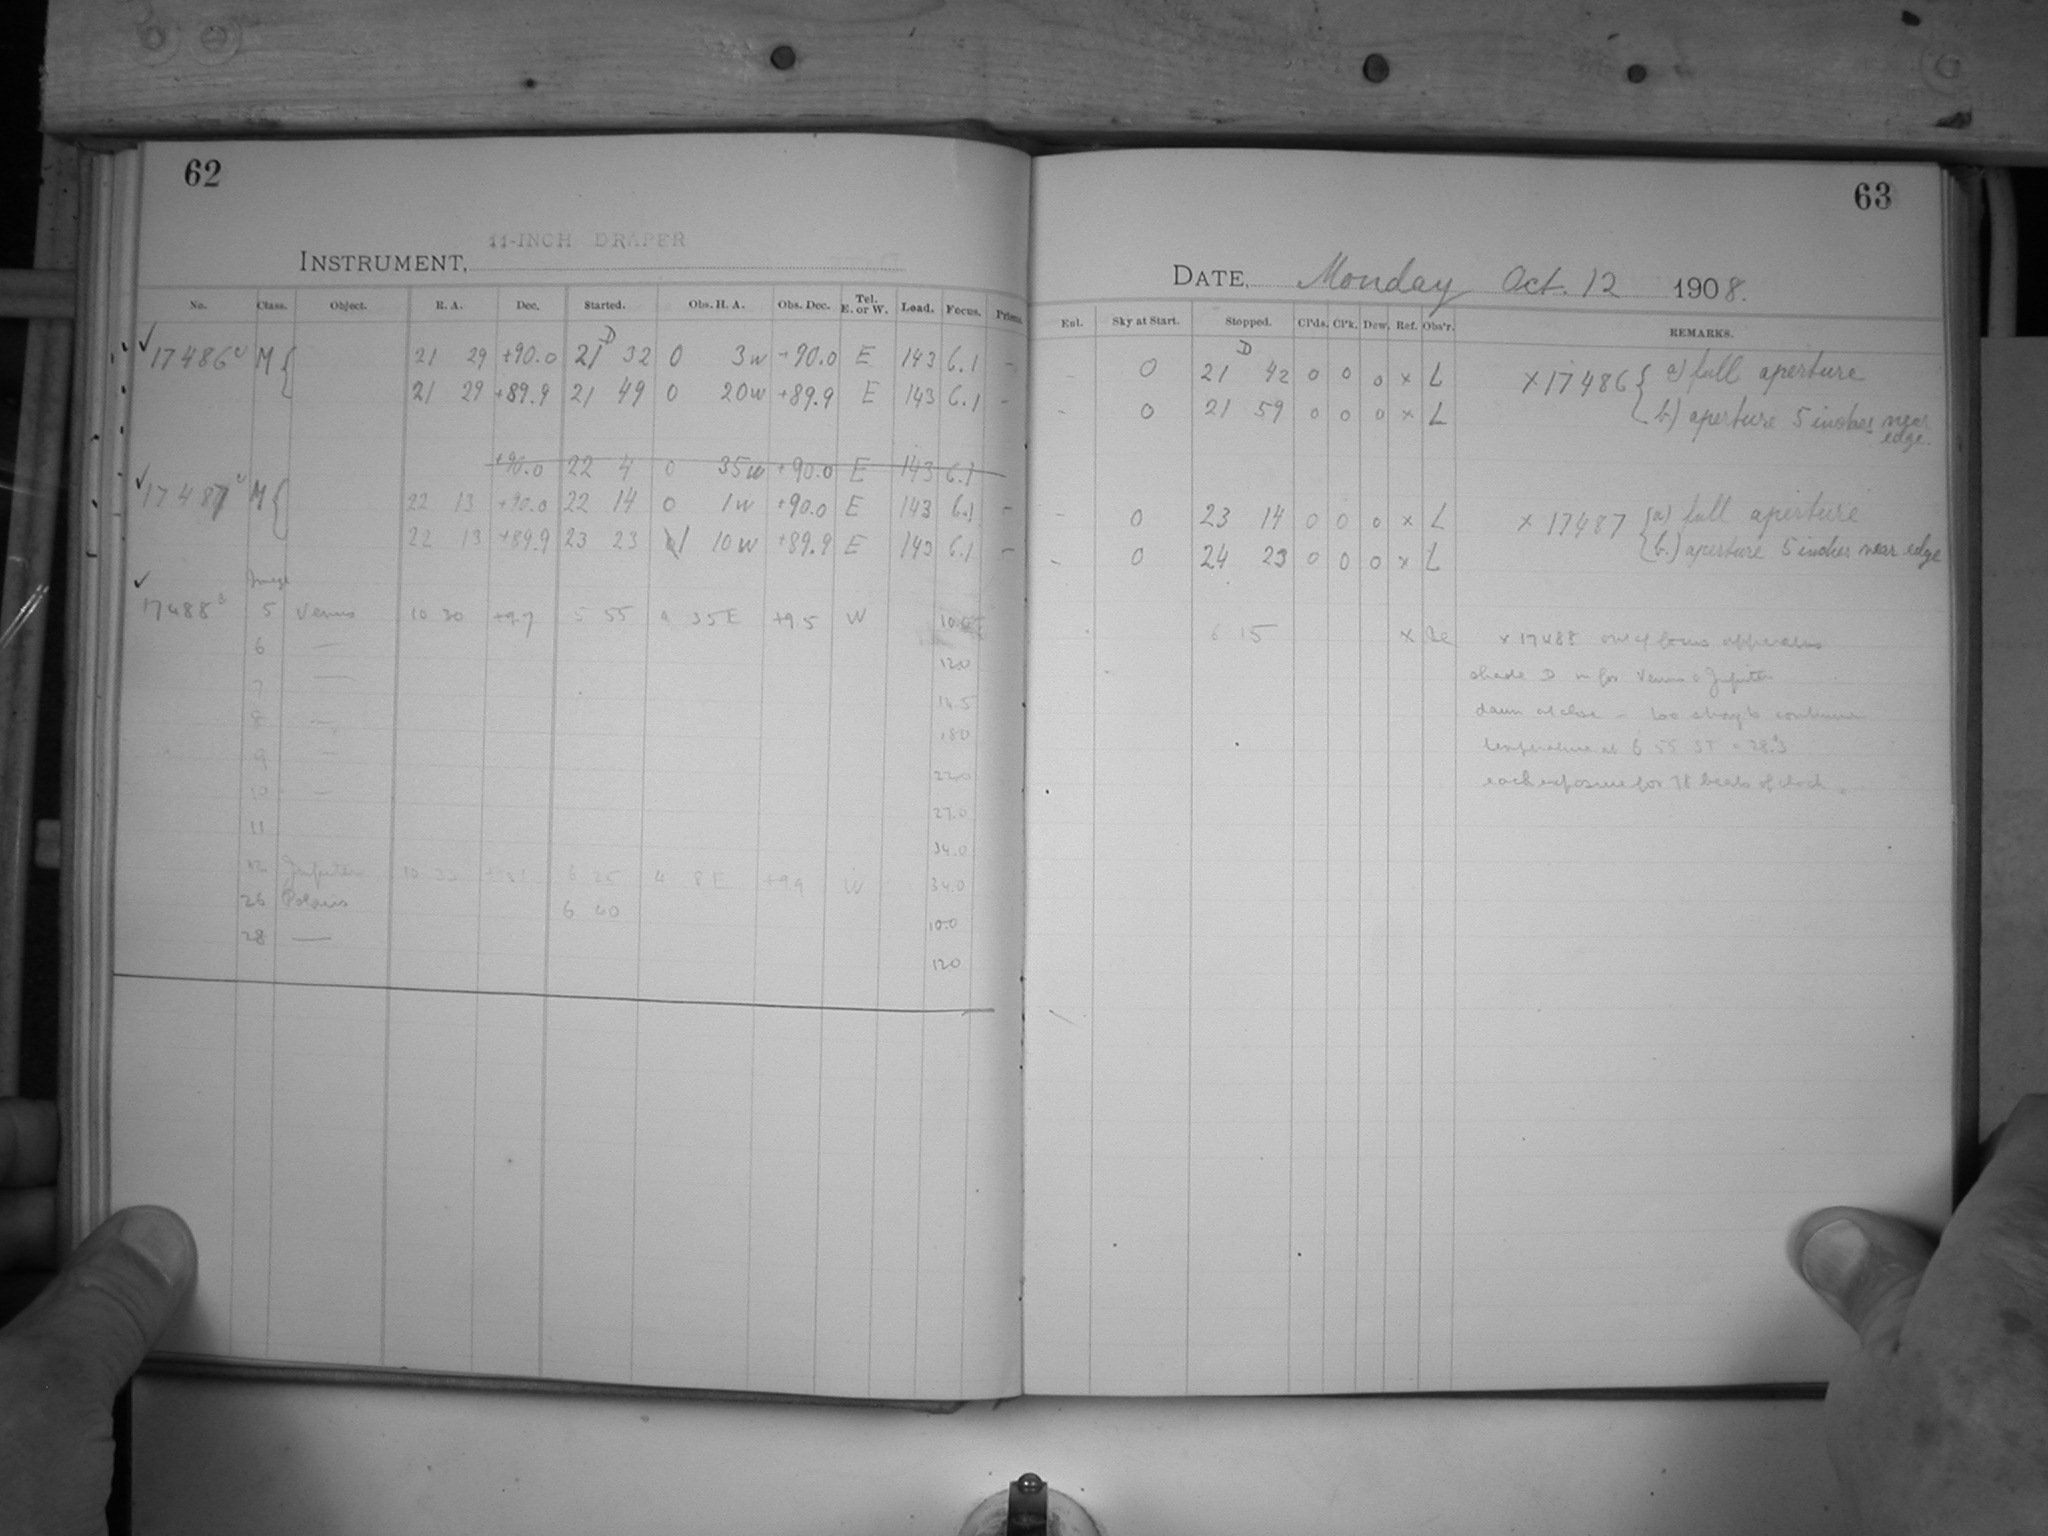 62
63
11-INCH DRAPER
INSTRUMENT,
DATE, Monday Oct. 12 1908.
No. Class. Object. R. A. Dec. Started. Obs. H. A. Obs. Dec. Tel. E. or W. Load. Focus. Prisms.
Enl. Sky at Start. Stopped. Cl'ds. Cl'k. Dew. Ref. Obs'r. REMARKS.
✓ 17486 M { 21 29 +90.0 21 D 32 0 3w +90.0 E 143 6.1 - - 0 21 D 42 0 0 0 x L x 17486 { a) full aperture
21 29 +89.9 21 49 0 20w +89.9 E 143 6.1 - - 0 21 59 0 0 0 x L b) aperture 5 inches near edge.
+90.0 22 4 0 35w +90.0 E 143 6.1
✓ 17487 M { 22 13 +90.0 22 14 0 1w +90.0 E 143 6.1 - - 0 23 14 0 0 0 x L x 17487 { (a) full aperture
22 13 +89.9 23 23 1 10w +89.9 E 143 6.1 - - 0 24 23 0 0 0 x L (b.) aperture 5 inches near edge
Image
✓ 17488 5 Venus 10 30 +9.7 5 55 4 35E +9.5 W 6 15 x x 17488 out of focus apparatus
6 — 12.0 shade D in for Venus & Jupiter
7 — 14.5 dawn at close -
8 — 18.0 temperature at 6 55 ST = 28.3
9 — 22.0 each exposure for 78 beats of clock.
10 — 27.0
11 34.0
12 Jupiter 10 6 25 4 8E +9.9 W 34.0
26 Polaris 6 40 10.0
28 — 12.0